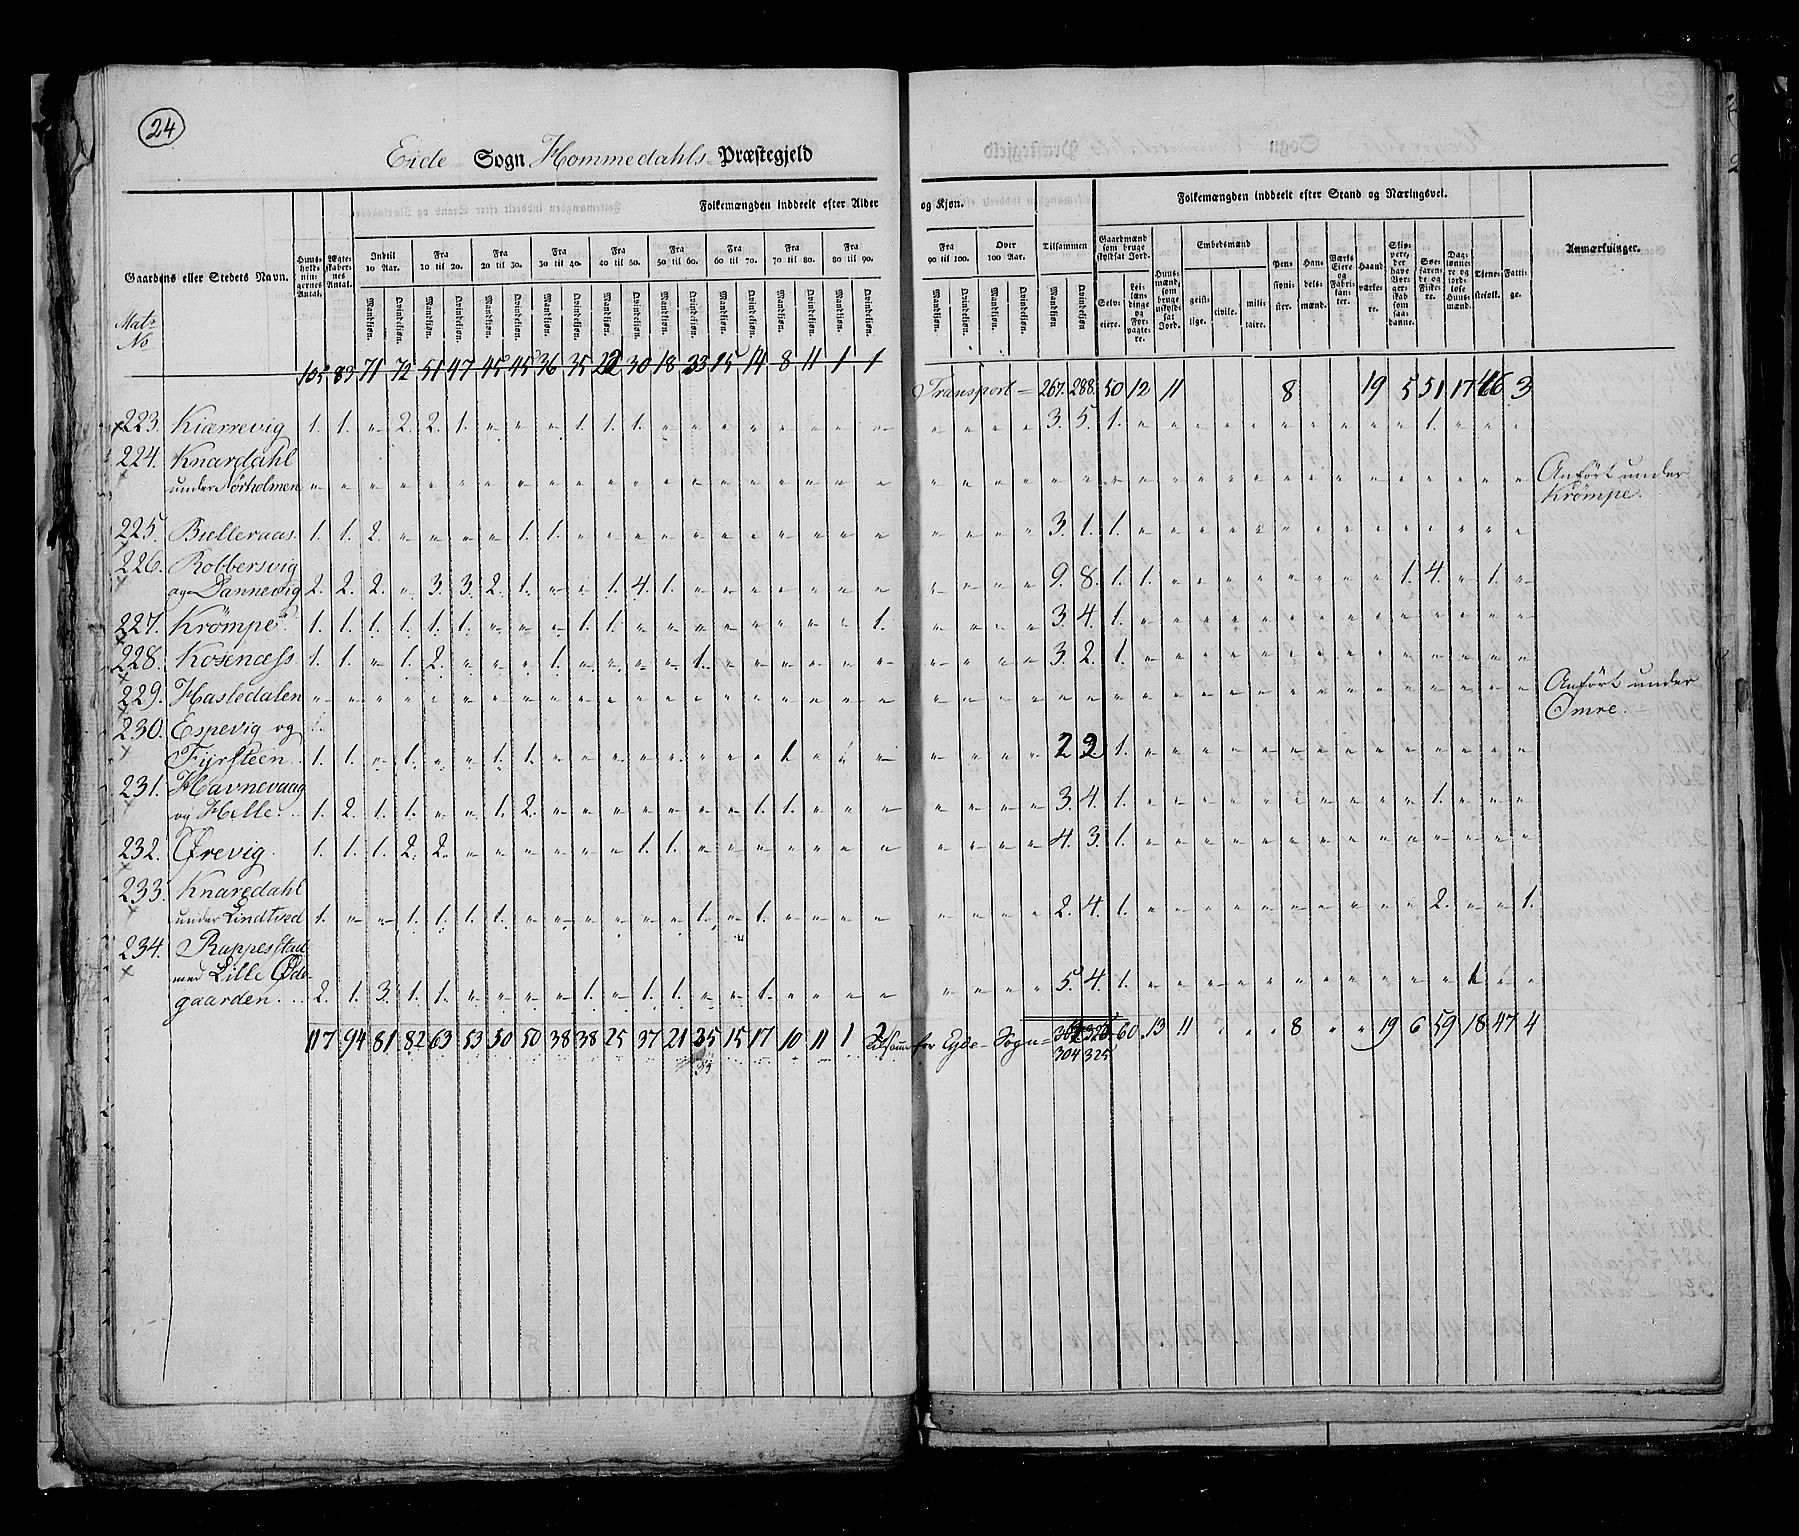 24
Eide Sogn Hommedahls Præstegjeld
Folkemængden inddeelt efter Alder og Kjøn. Tilsammen Folkemængden inddeelt efter Stand og Næringsvei.
Gaardens eller Stedets Navn. Huusholdningernes Antal. Ægteskabernes Antal. Indtil 10 Aar. Fra 10 til 20. Fra 20 til 30. Fra 30 til 40. Fra 40 til 50. Fra 50 til 60. Fra 60 til 70. Fra 70 til 80. Fra 80 til 90. Fra 90 til 100. Over 100 Aar. Anmærkninger.
Gaardmænd som bruge skyldsat Jord. Huusmænd, som bruge uskyldsat Jord. Embedsmænd Pensionister. Handelsmænd. Haandværkere. Tjenestefolk. Fattige.
Mandkjøn. Qvindekjøn. Mandkjøn. Qvindekjøn. Mandkjøn. Qvindekjøn. Mandkjøn. Qvindekjøn. Mandkjøn. Qvindekjøn. Mandkjøn. Qvindekjøn. Mandkjøn. Qvindekjøn. Mandkjøn. Qvindekjøn. Mandkjøn. Qvindekjøn. Mandkjøn. Qvindekjøn. Mandkjøn. Qvindekjøn. Mandkjøn Qvindekjøn Selveiere. geistlige. civile. militaire.
Matr No
105 83 71 72 51 47 45 45 36 35 22 30 18 33 15 14 8 11 1 1 Transport = 267. 288. 50 12 11 8 19 5 51 17 46 3
223. Kiærrevig 1. 1. " 2. 2. 1. " " " 1. 1. 1. " " " " " " " " " " " " 3. 5. 1. " " " " " " " " " " 1. " " "
224. Knardahl
under Nørholmen " " " " " " " " " " " " " " " " " " " " " " " " " " " " " " " " " " " " " " " " " Anført under
Krömpe.
225. Bulleraas 1. 1. 2. " " " " 1. 1. " " " " " " " " " " " " " " " 3. 1. 1. " " " " " " " " " " " " " "
226. Robbersvig
og Dannevig 2. 2. 2. " 3. 3. 2. 1. " " 1. 4. 1. " " " " " " " " " " " 9. 8. 1. 1. " " " " " " " " 1. 4. " 1. "
227. Krömpe 1. 1. 1. 1. 1. 1. " " " 1. 1. " " " " " " " " 1. " " " " 3. 4. 1. " " " " " " " " " " " " " "
228. Kosenæss 1. 1. " 1. 2. " " " 1. " " " " 1. " " " " " " " " " " 3. 2. 1. " " " " " " " " " " " " " "
229. Hasledalen " " " " " " " " " " " " " " " " " " " " " " " " " " " " " " " " " " " " " " " " " Anført under
Omre.
230. Espevig og
Fyrsteen 1. 1. " 1. " " 1. 1. " " " " " " " " 1 " " " " " " " 2 2. 1. " " " " " " " " " " " " " "
231. Havnevaag
og Helle 1. 2. 1. 1. " " 1. 2. " " " " " " " 1. 1. " " " " " " " 3. 4. 1. " " " " " " " " " " 1. " " "
232. Ørevig 1. 1. 1. 2. 2. " " " " " " 1. 1. " " " " " " " " " " " 4. 3. 1. " " " " " " " " " " " " " "
233. Knaredahl
under Lindtved 1. " " 1. 1. 1. 1. " " " " " " 1. " 1. " " " " " " " " 2. 4. 1. " " " " " " " " " " 2. " " 1.
234. Ruppesstad
med Lille Øde-
gaarden 2. 1. 3. 1. 1. " " " " 1. " 1. 1. " " 1. " " " " " " " " 5. 4. 1. " " " " " " " " " " " 1. " "
117 94 81 82 63 53 50 50 38 38 25 37 21 35 15 17 10 11 1 2 Tilsam for Eyde Sogn = 60 13 11 " " " 8 " " 19 6 59 18 47 4
304 325